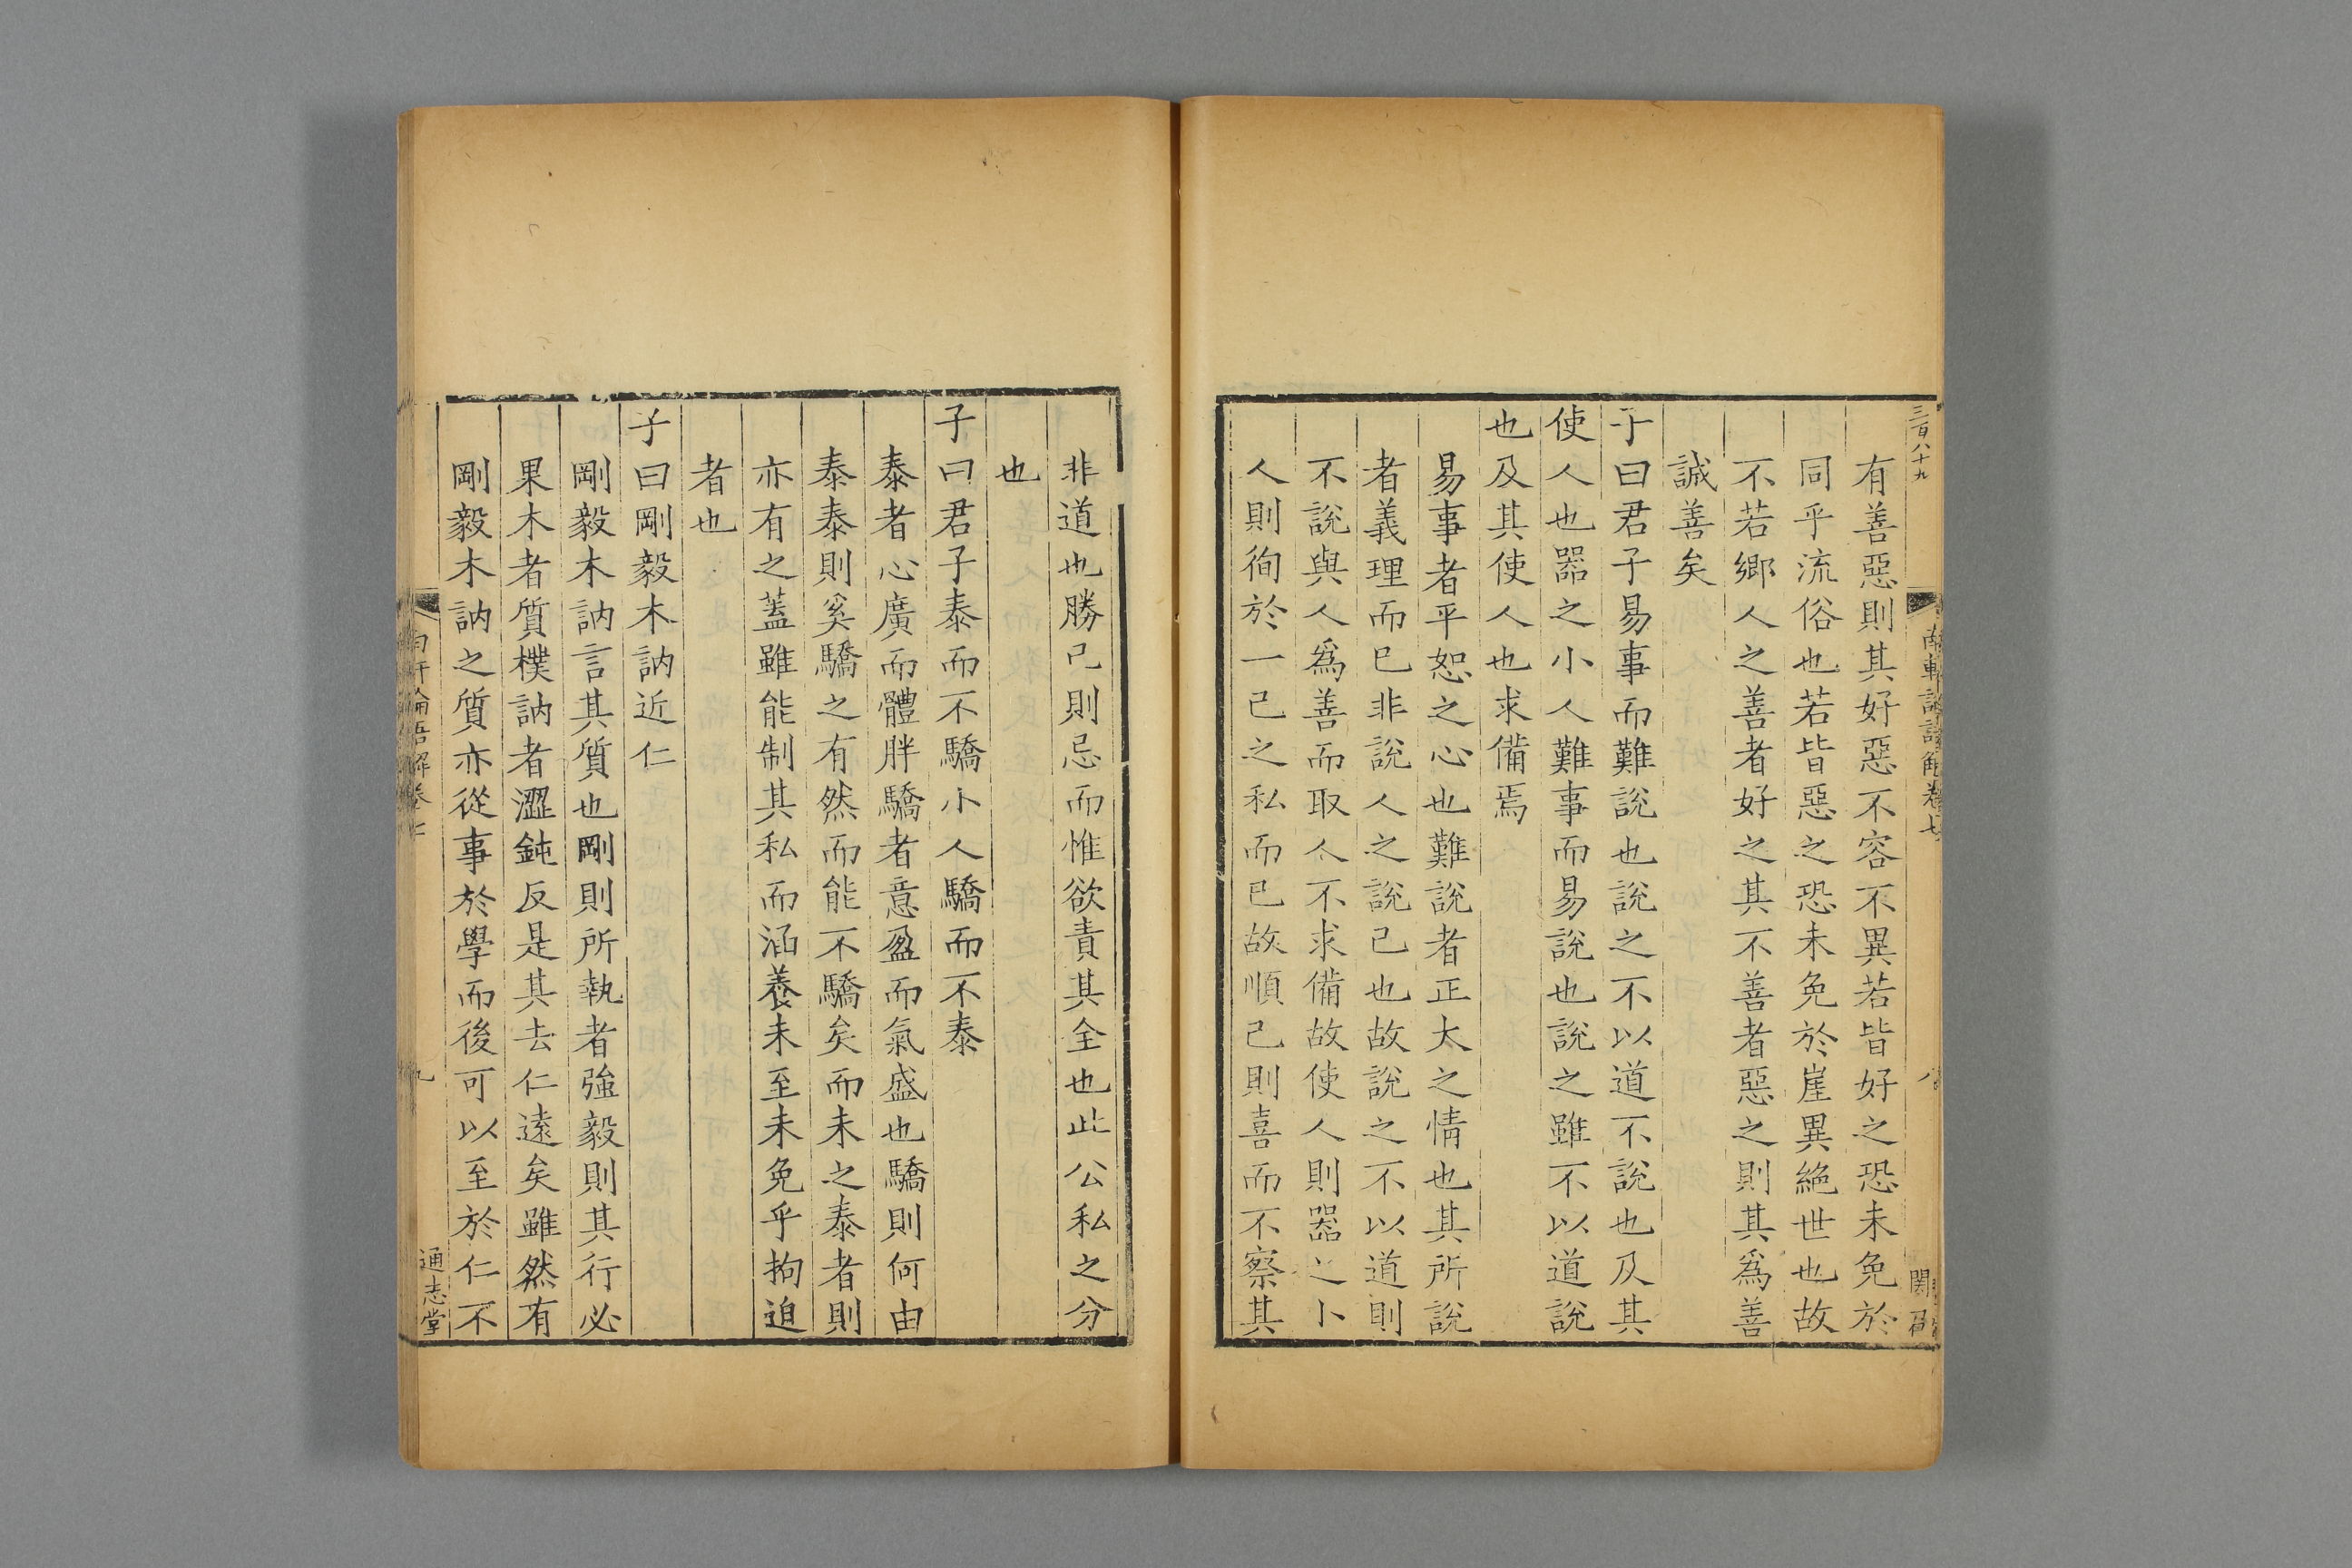 三百八十九
南軒論語解卷七
八
有善惡則其好惡不容不異若皆好之恐未免於
同乎流俗也若皆惡之恐未免於崖異絕世也故
不若鄉人之善者好之其不善者惡之則其爲善
誠善矣
子曰君子易事而難說也說之不以道不說也及其
使人也器之小人難事而易說也說之雖不以道說
也及其使人也求備焉
易事者平恕之心也難說者正大之情也其所說
者義理而已非說人之說己也故說之不以道則
不說與人爲善而取人不求備故使人則器之小
人則徇於一己之私而已故順己則喜而不察其
非道也勝己則忌而惟欲責其全也此公私之分
也
子曰君子泰而不驕小人驕而不泰
泰者心廣而體胖驕者意盈而氣盛也驕則何由
泰泰則奚驕之有然而能不驕矣而未之泰者則
亦有之蓋雖能制其私而涵養未至未免乎拘迫
者也
子曰剛毅木訥近仁
剛毅木訥言其質也剛則所執者強毅則其行必
果木者質樸訥者澀鈍反是其去仁遠矣雖然有
剛毅木訥之質亦從事於學而後可以至於仁不
南軒論語解卷七
九
通志堂